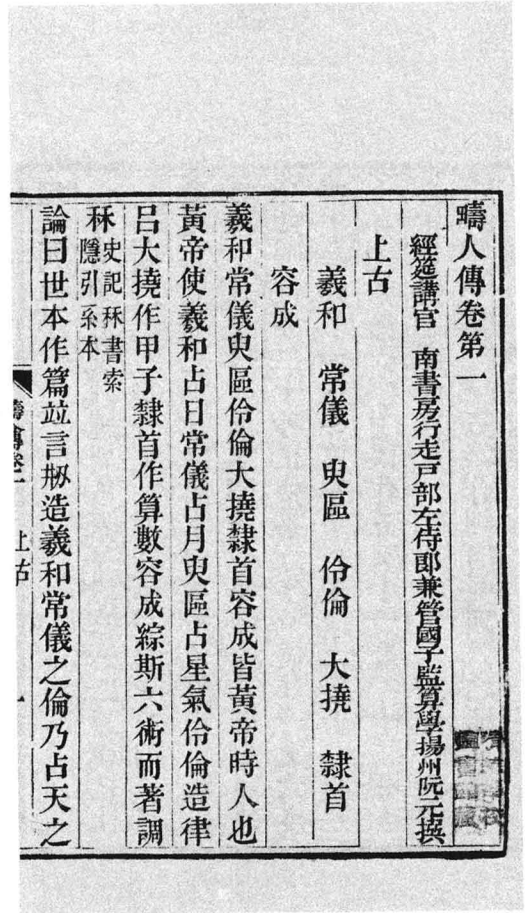 疇人傳卷第一
經筵講官 南書房行走戸部左侍郎兼管國子監算學揚州阮元撰
上古
羲和 常儀 臾區 伶倫 大撓 隸首
容成
羲和常儀臾區伶倫大撓隸首容成皆黃帝時人也
黃帝使羲和占日常儀占月臾區占星氣伶倫造律
呂大撓作甲子隸首作算數容成綜斯六術而著調
秝史記秝書索
隱引系本
論曰世本作篇竝言剏造羲和常儀之倫乃占天之
疇人傳卷一 上古 一